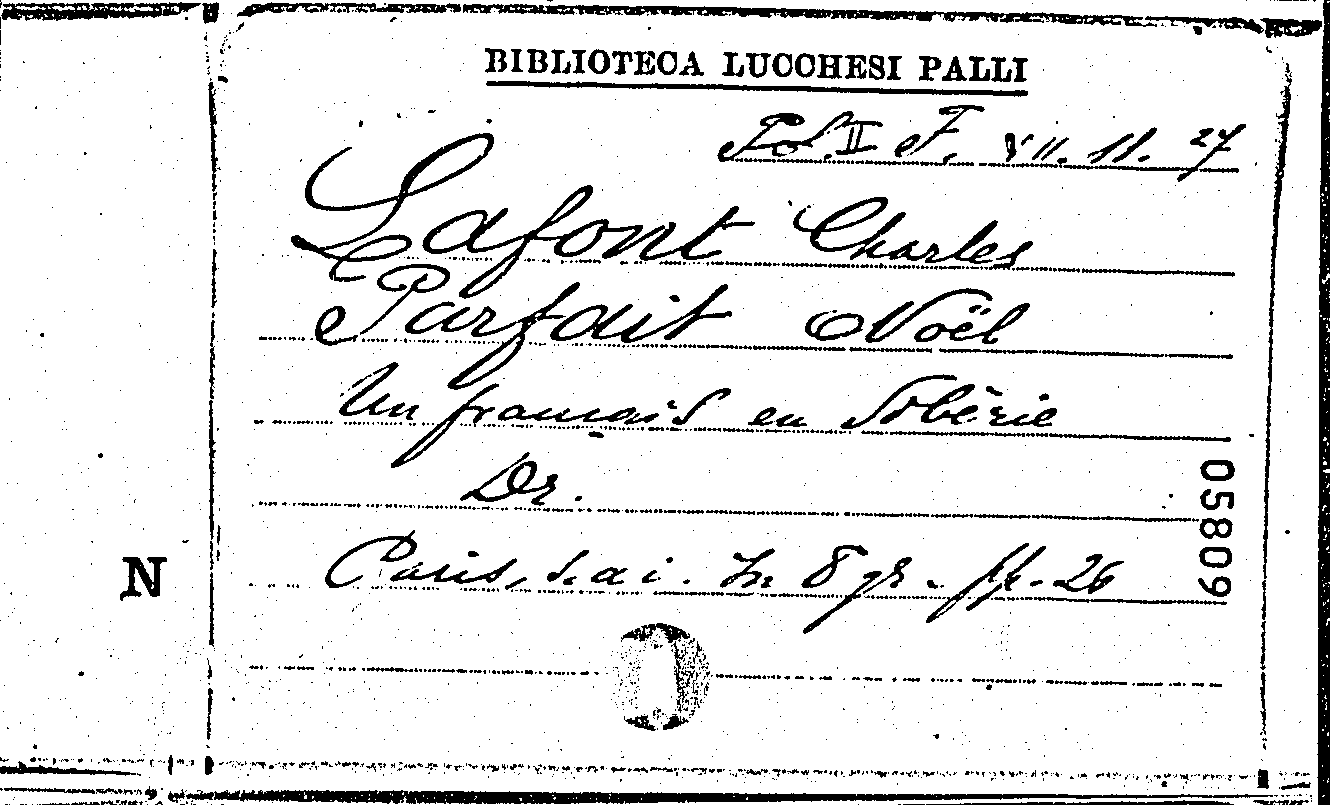 BIBLIOTECA LUCCHESI PALLI
Pol. II F. VII. 11. 27
Lafont Charles
Parfait Noël
Un français en Sibérie
Dr.
Paris, s. a i. In 8 gr. pp. 26
05809
N